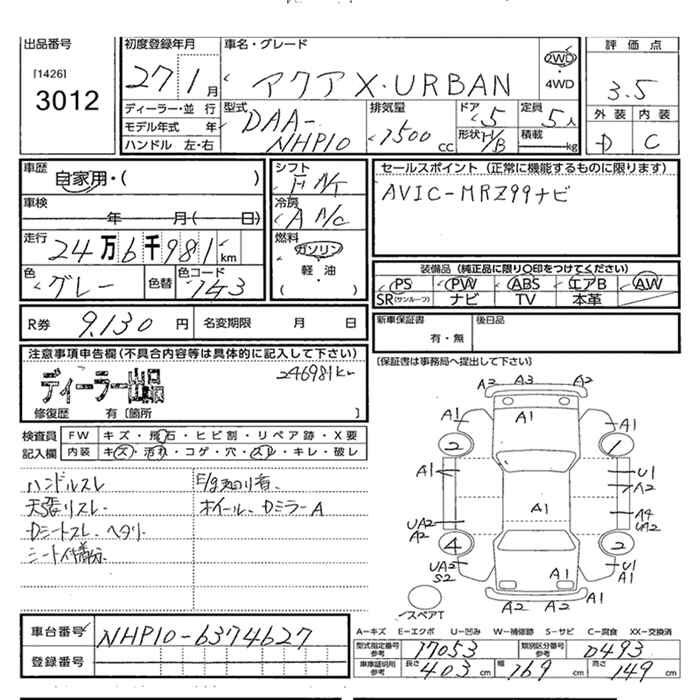 出品番号
[1426]
3012
初度登録年月
27 1月
車名・グレード
アクア X・URBAN
2WD
・
4WD
評価点
3.5
外装 内装
D C
ディーラー・並行
モデル年式 年
ハンドル 左・右
型式
DAA-
NHP10
排気量
1500cc
ドア
5
形状 H/B
定員
5人
積載
kg
車歴
自家用・( )
車検
年 月( 日)
走行
24万6千981km
色
グレー
色替
色コード
1G3
シフト
F AT
冷房
A A/C
燃料
ガソリン
・
軽・油
( )
セールスポイント (正常に機能するものに限ります)
AVIC-MRZ99ナビ
装備品 (純正品に限り○印をつけてください)
PS PW ABS エアB AW
SR(サンルーフ) ナビ TV 本革
R券 9,130円
名変期限 月 日
新車保証書
有・無
後日品
[保証書は事務局へ提出して下さい]
注意事項申告欄(不具合内容等は具体的に記入して下さい)
246981km
ディーラー出品
修復歴 有〔箇所 〕
検査員
記入欄
FW キズ・飛石・ヒビ割・リペア跡・X要
内装 キズ・汚れ・コゲ・穴・スレ・キレ・破レ
ハンドルスレ
天張リスレ
Dシートスレ、ヘタリ
ホイール、DミラーA
A3 A3 A2
A1 A1 A1
2 1
A1 U1
A2
A1
UA2 A4
A2 UA2
4 2
UA2 U1
S2 A1 A1 A1
A2 A2
スペアT
車台番号 NHP10-6374627
登録番号
A−キズ E−エクボ U−凹み W−補修跡 S−サビ C−腐食 XX−交換済
型式指定番号
参考
17053
類別区分番号
参考
0493
車庫証明用
参考
長さ 403cm 幅 169cm 高さ 149cm